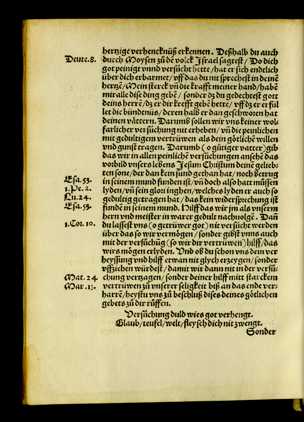 hertzige verhencknüß erkennen. Deßhalb du auch
Deute.8. durch Moysen zů de volck Israel sagest / Do dich
got peinigt vnnd versůcht hette / hat er sich endlich
über dich erbarmet / vff das du nit sprechest in deinē
hertzē / Mein sterck vñ die krafft meiner hand / habē
mir alle dise ding gebē / sonder dz du gedechest gott
deins herrē / dz er dir krefft gebē hette / vff dz er erfül
let die bündtnus / deren halb er dan geschworen hat
deinen vättern. Darumb sollen wir vns keiner wol
farlicher versůchung nit erheben / vñ die peinlichen
mit gedultigem vertrüwen als dein götliche willen
vnd gunst tragen. Darumb (o gütiger vatter) gib
das wir in allen peinlichē versůchungen ansehē das
vorbild vnsers lebens Jesum Christum deine geliebtē
sone / der dan kein sünd gethan hat / noch betrug
Esa.53. in seinem mund funden ist / vñ doch also hatt müssen
1.Pe.2. lyden / vñ sein glory ingehen / welches lyden er auch so
Lu.24. gedultig getragen hat / das kein widersprechung ist
Esa.53. fundē in seinem mund. Hilff das wir jm als vnserm
hern vnd meister in warer gedult nachuolgē. Dañ
1.Cor.10. du lassest vns (o getrüwer got) nit versůcht werden
über das so wir vermögen / sonder gibst vnns auch
mit der versůchūg (so wir dir vertrüwen) hilff / das
wirs mögen erlyden. Vnd ob du schon vns dein ver
heyssung vnd hilff etwan nit glych erzeygen / sonder
vffziehen würdest / damit wir dann nit in der versů
Mat.24. chung verzagen / sonder deiner hilff mit starckem
Mar.13. vertrüwen zů vnserer seligkeit biß an das ende ver
harrē / heystu vns zů beschluß dises deines götlichen
gebets zů dir růffen.
Versůchung duld wies got verhengt.
Glaub / teufel / welt / fleysch dich nit zwengt.
Sonder